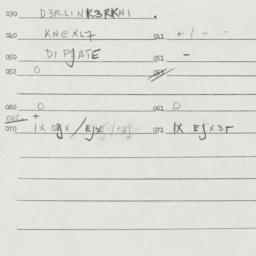 030 D3RLINK3RKNI .
040 KNEXL7 041 + / - -
050 DIPJATE 051 -
052 0
060 0 061 0
+
070 1X /EJX 071 1X EJX3Г